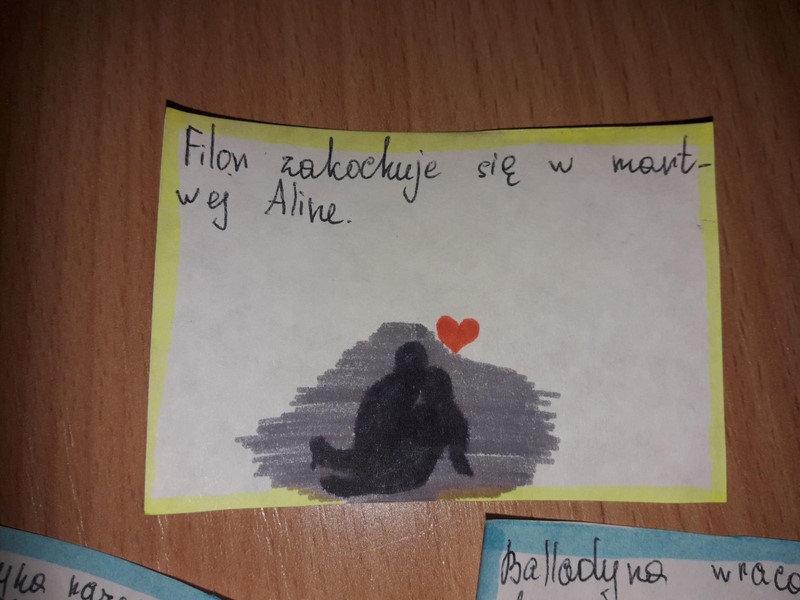 Filon zakochuje się w mart-
wej Aline.
Balladyna wraca